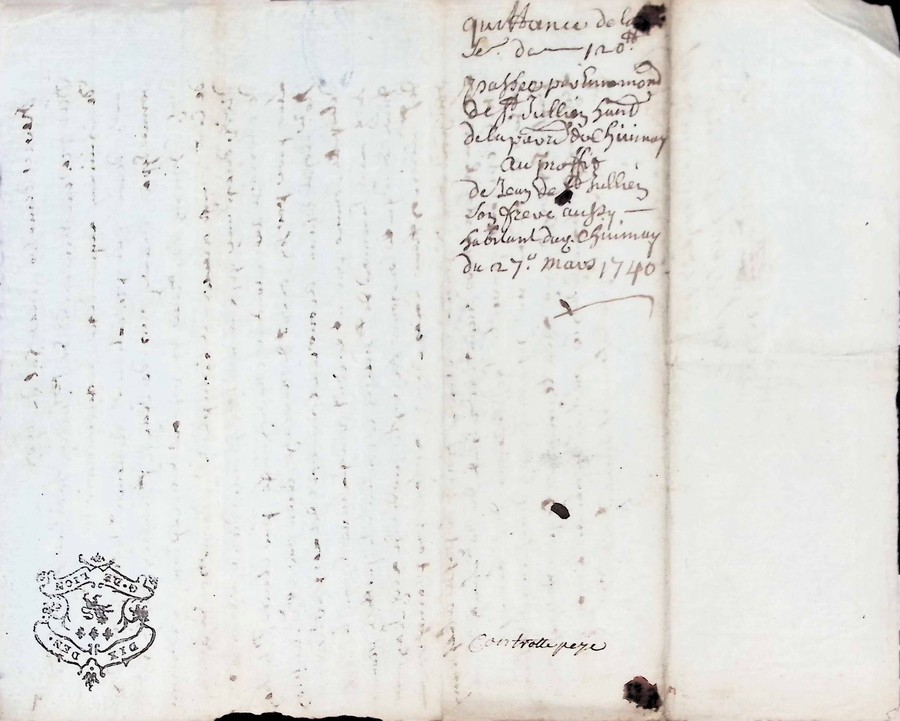 quittance de la
se. de 120ᵗᵗ
passee par Ennemond
de St Jullien hant
de la parr. de Chuinay
Au proffit
de Jean de St Jullien
son freve aussy
habitant duq. Chuinay
du 27.e Mars 1740
Controlle paye
G. DE LION
DIX DEN.